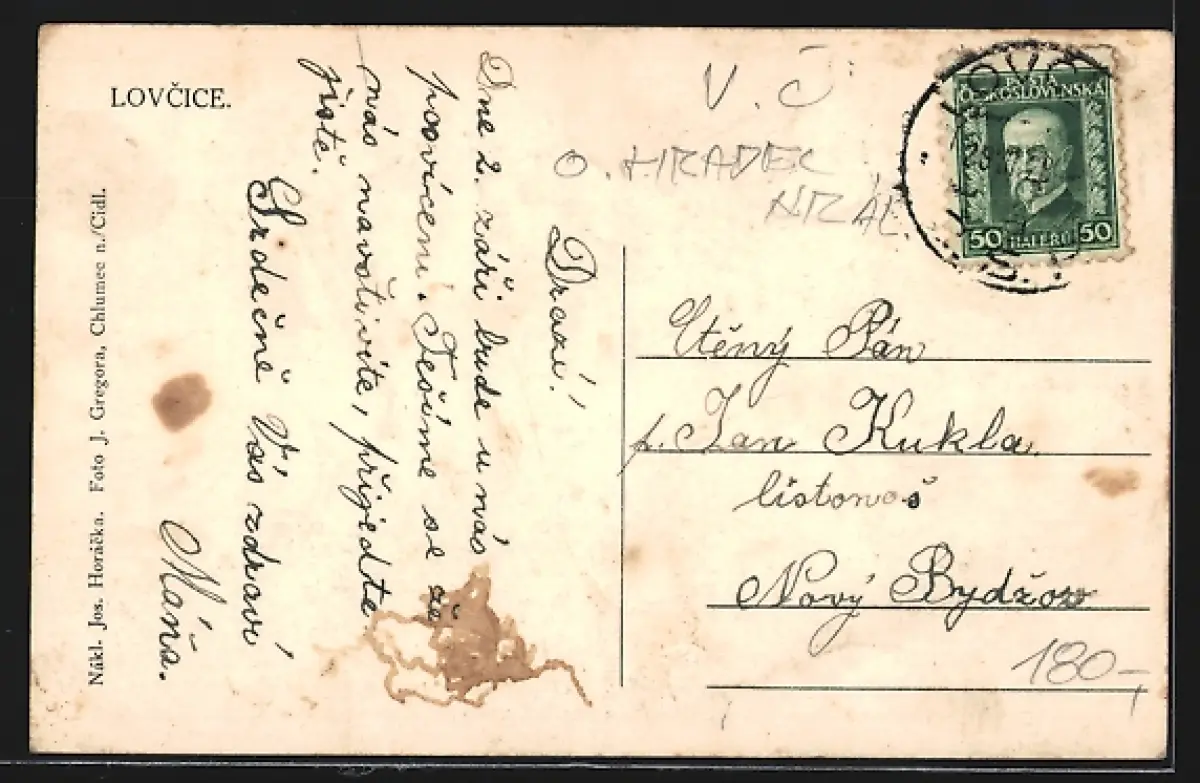 LOVČICE.
Nákl. Jos. Horáčka. Foto J. Gregora, Chlumec n./Cidl.
Drazí!
Dne 2. září bude u nás
posvícení. Těšíme se že
nás navštívíte, přijedte
jistě.
Srdečně Vás zdraví
Máňa.
V. Č
O. HRADEC
KRÁL.
POŠTA
ČESKOSLOVENSKÁ
50 HALÉŘŮ 50
Ctěný Pán
p. Jan Kukla
listonoš
Nový Bydžov
180-